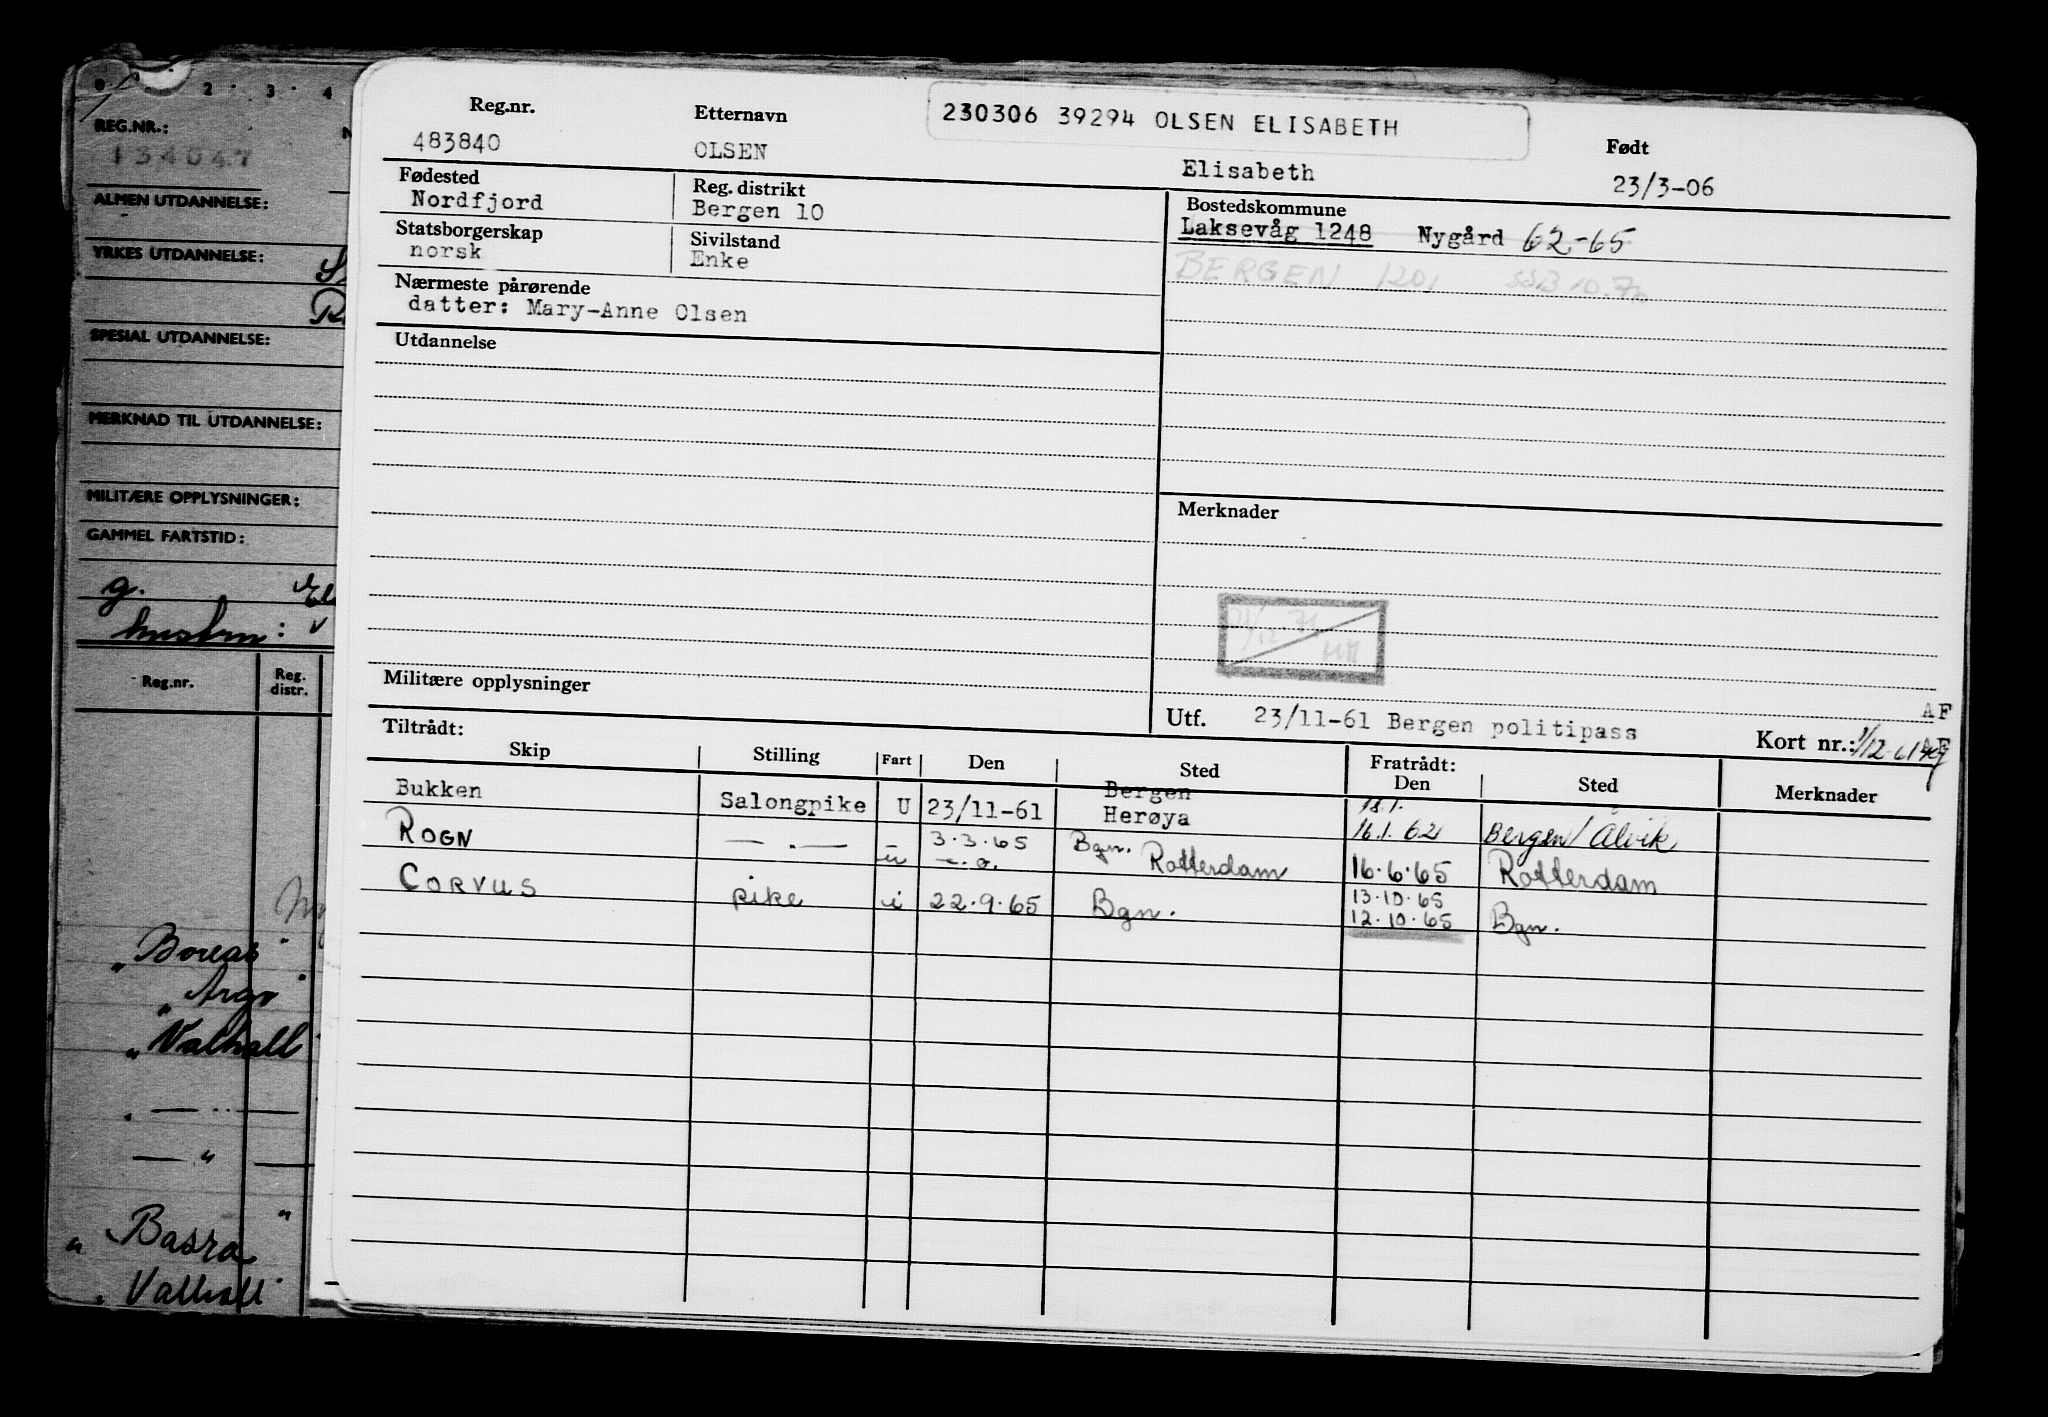 2 3 4
REG.NR.:
134047
ALMEN UTDANNELSE:
YRKES UTDANNELSE:
SPESIAL UTDANNELSE:
MERKNAD TIL UTDANNELSE:
MILITÆRE OPPLYSNINGER:
GAMMEL FARTSTID:
g.
hustru:
Reg.nr. Reg. distr.
"Boreas"
"Argo"
"Valhall"
"Basra"
"Valhall"
230306 39294 OLSEN ELISABETH
Reg.nr. Etternavn Født
483840 OLSEN Elisabeth 23/3-06
Fødested Reg. distrikt Bostedskommune
Nordfjord Bergen 10 Laksevåg 1248 Nygård 62-65
Statsborgerskap Sivilstand
norsk Enke BERGEN 1201 SSB 10.70
Nærmeste pårørende
datter: Mary-Anne Olsen
Utdannelse
Merknader
Militære opplysninger
AF
Utf. 23/11-61 Bergen politipass Kort nr.:
Tiltrådt: Fratrådt:
Skip Stilling Fart Den Sted Den Sted Merknader
Bukken Salongpike U 23/11-61 Bergen Herøya 18.1. 16.1.62 Bergen/Ålvik
ROGN — . — – 3.3.65 Bgn.
u Rotterdam 16.6.65 Rotterdam
CORVUS pike i 22.9.65 Bgn. 13.10.65
12.10.65 Bgn.